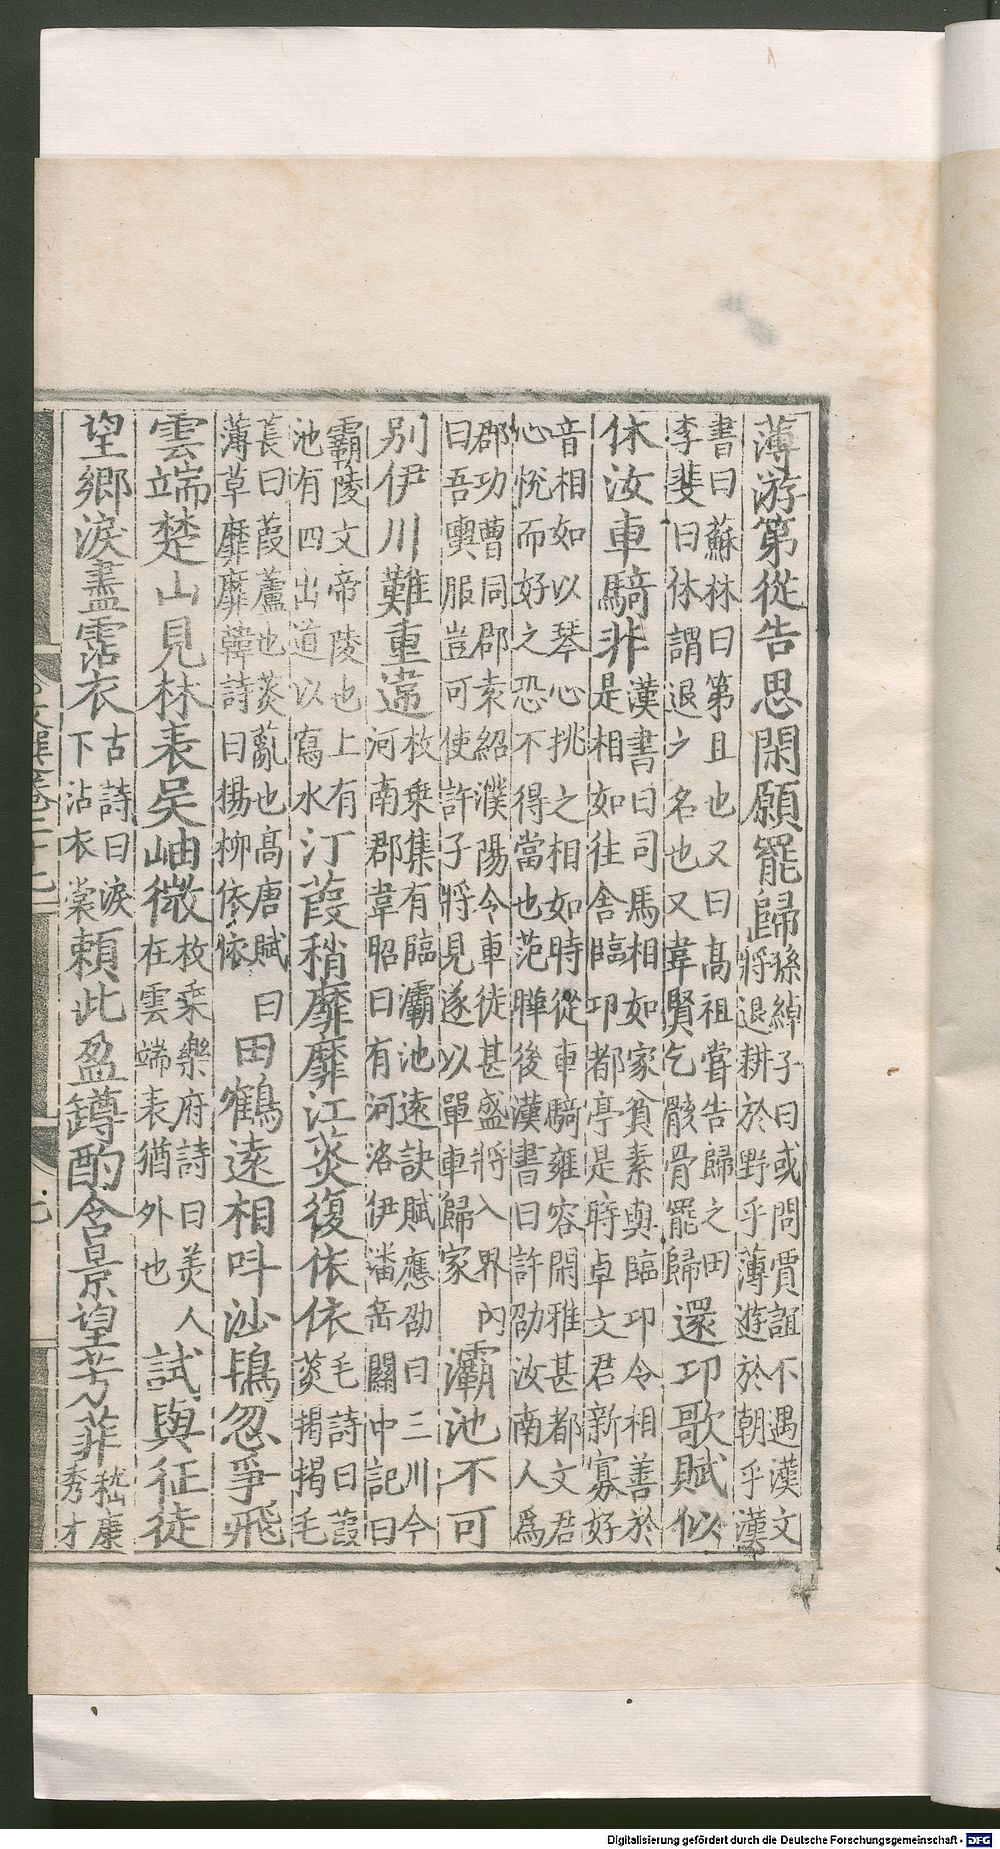 薄游第從告思閑願罷歸孫綽子曰或問賈誼不遇漢文
將退耕於野乎薄遊於朝乎漢
書曰蘇林曰第且也又曰高祖嘗告歸之田
李斐曰休謂退之名也又韋賢乞骸骨罷歸還卭歌賦似
休汝車騎非漢書曰司馬相如家貧素與臨卭令相善於
是相如往舍臨卭都亭是時卓文君新寡好
音相如以琴心挑之相如時從車騎雍容閑雅甚都文君
心悅而好之恐不得當也范曄後漢書曰許劭汝南人為
郡功曹同郡袁紹濮陽令車徒甚盛將入界內
曰吾輿服豈可使許子將見遂以單車歸家灞池不可
別伊川難重違枚乘集有臨灞池遠訣賦應劭曰三川今
河南郡韋昭曰有河洛伊潘岳關中記曰
霸陵文帝陵也上有
池有四出道以寫水汀葭稍靡靡江菼復依依毛詩曰葭
菼揭揭毛
萇曰葭蘆也菼薍也高唐賦曰
薄草靡靡韓詩曰楊柳依依田鶴遠相叫沙鴇忽爭飛
雲端楚山見林表吳岫微枚乘樂府詩曰美人
在雲端表猶外也試與征徒
望鄉淚盡霑衣古詩曰淚
下沾衣裳賴此盈罇酌含景望芳菲嵇康
秀才
Digitalisierung gefördert durch die Deutsche Forschungsgemeinschaft - DFG